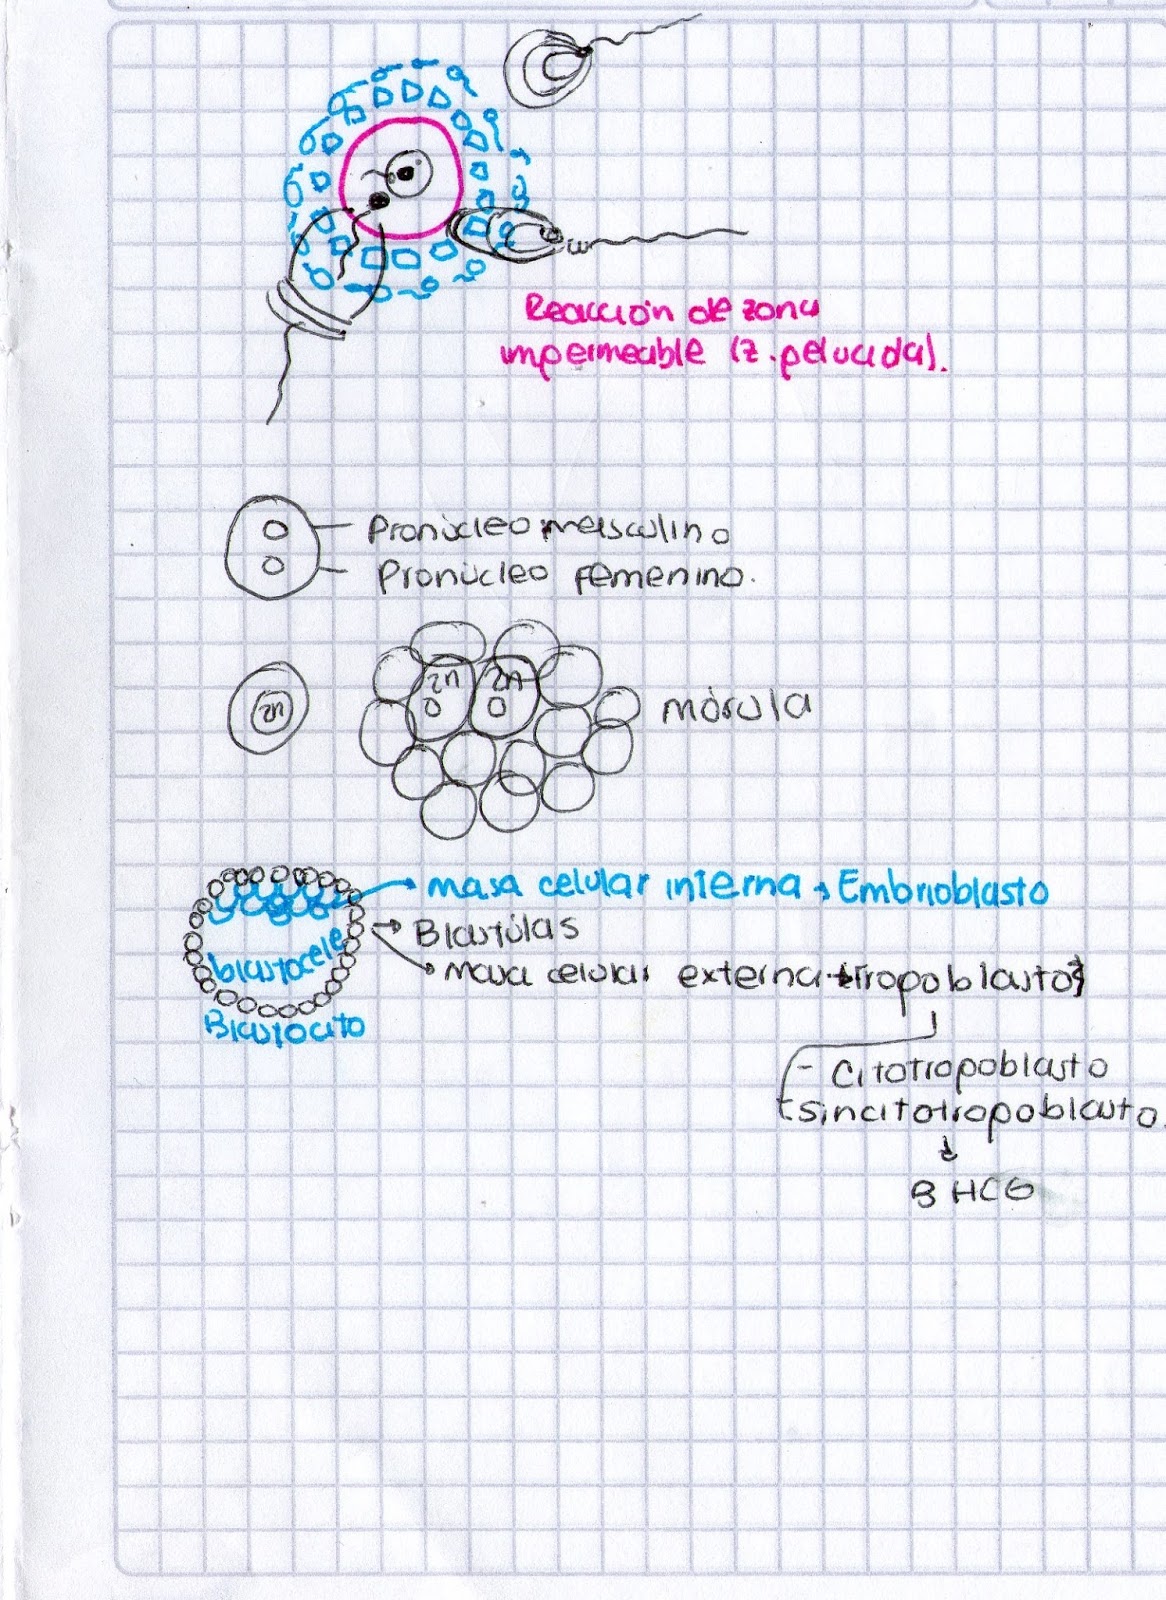 Reacción de zona
impermeable (z. pelucida).
Pronúcleo masculino
Pronúcleo femenino.
2n 2n
2n
mórula
masa celular interna → Embrioblasto
Blástulas
blastocele
masa celular externa → Tropoblasto
Blastocito
- Citotropoblasto
- sincitotropoblasto.
B HCG